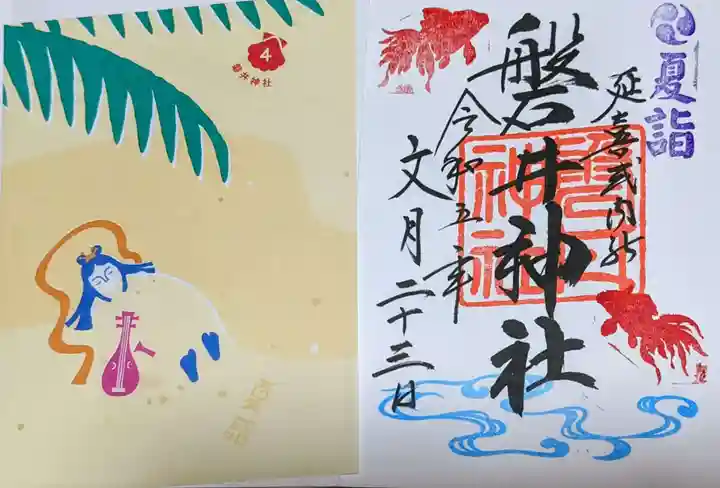 4
磐井神社
夏詣
延喜式内社
磐井神社
磐井
神社
令和五年
文月二十三日